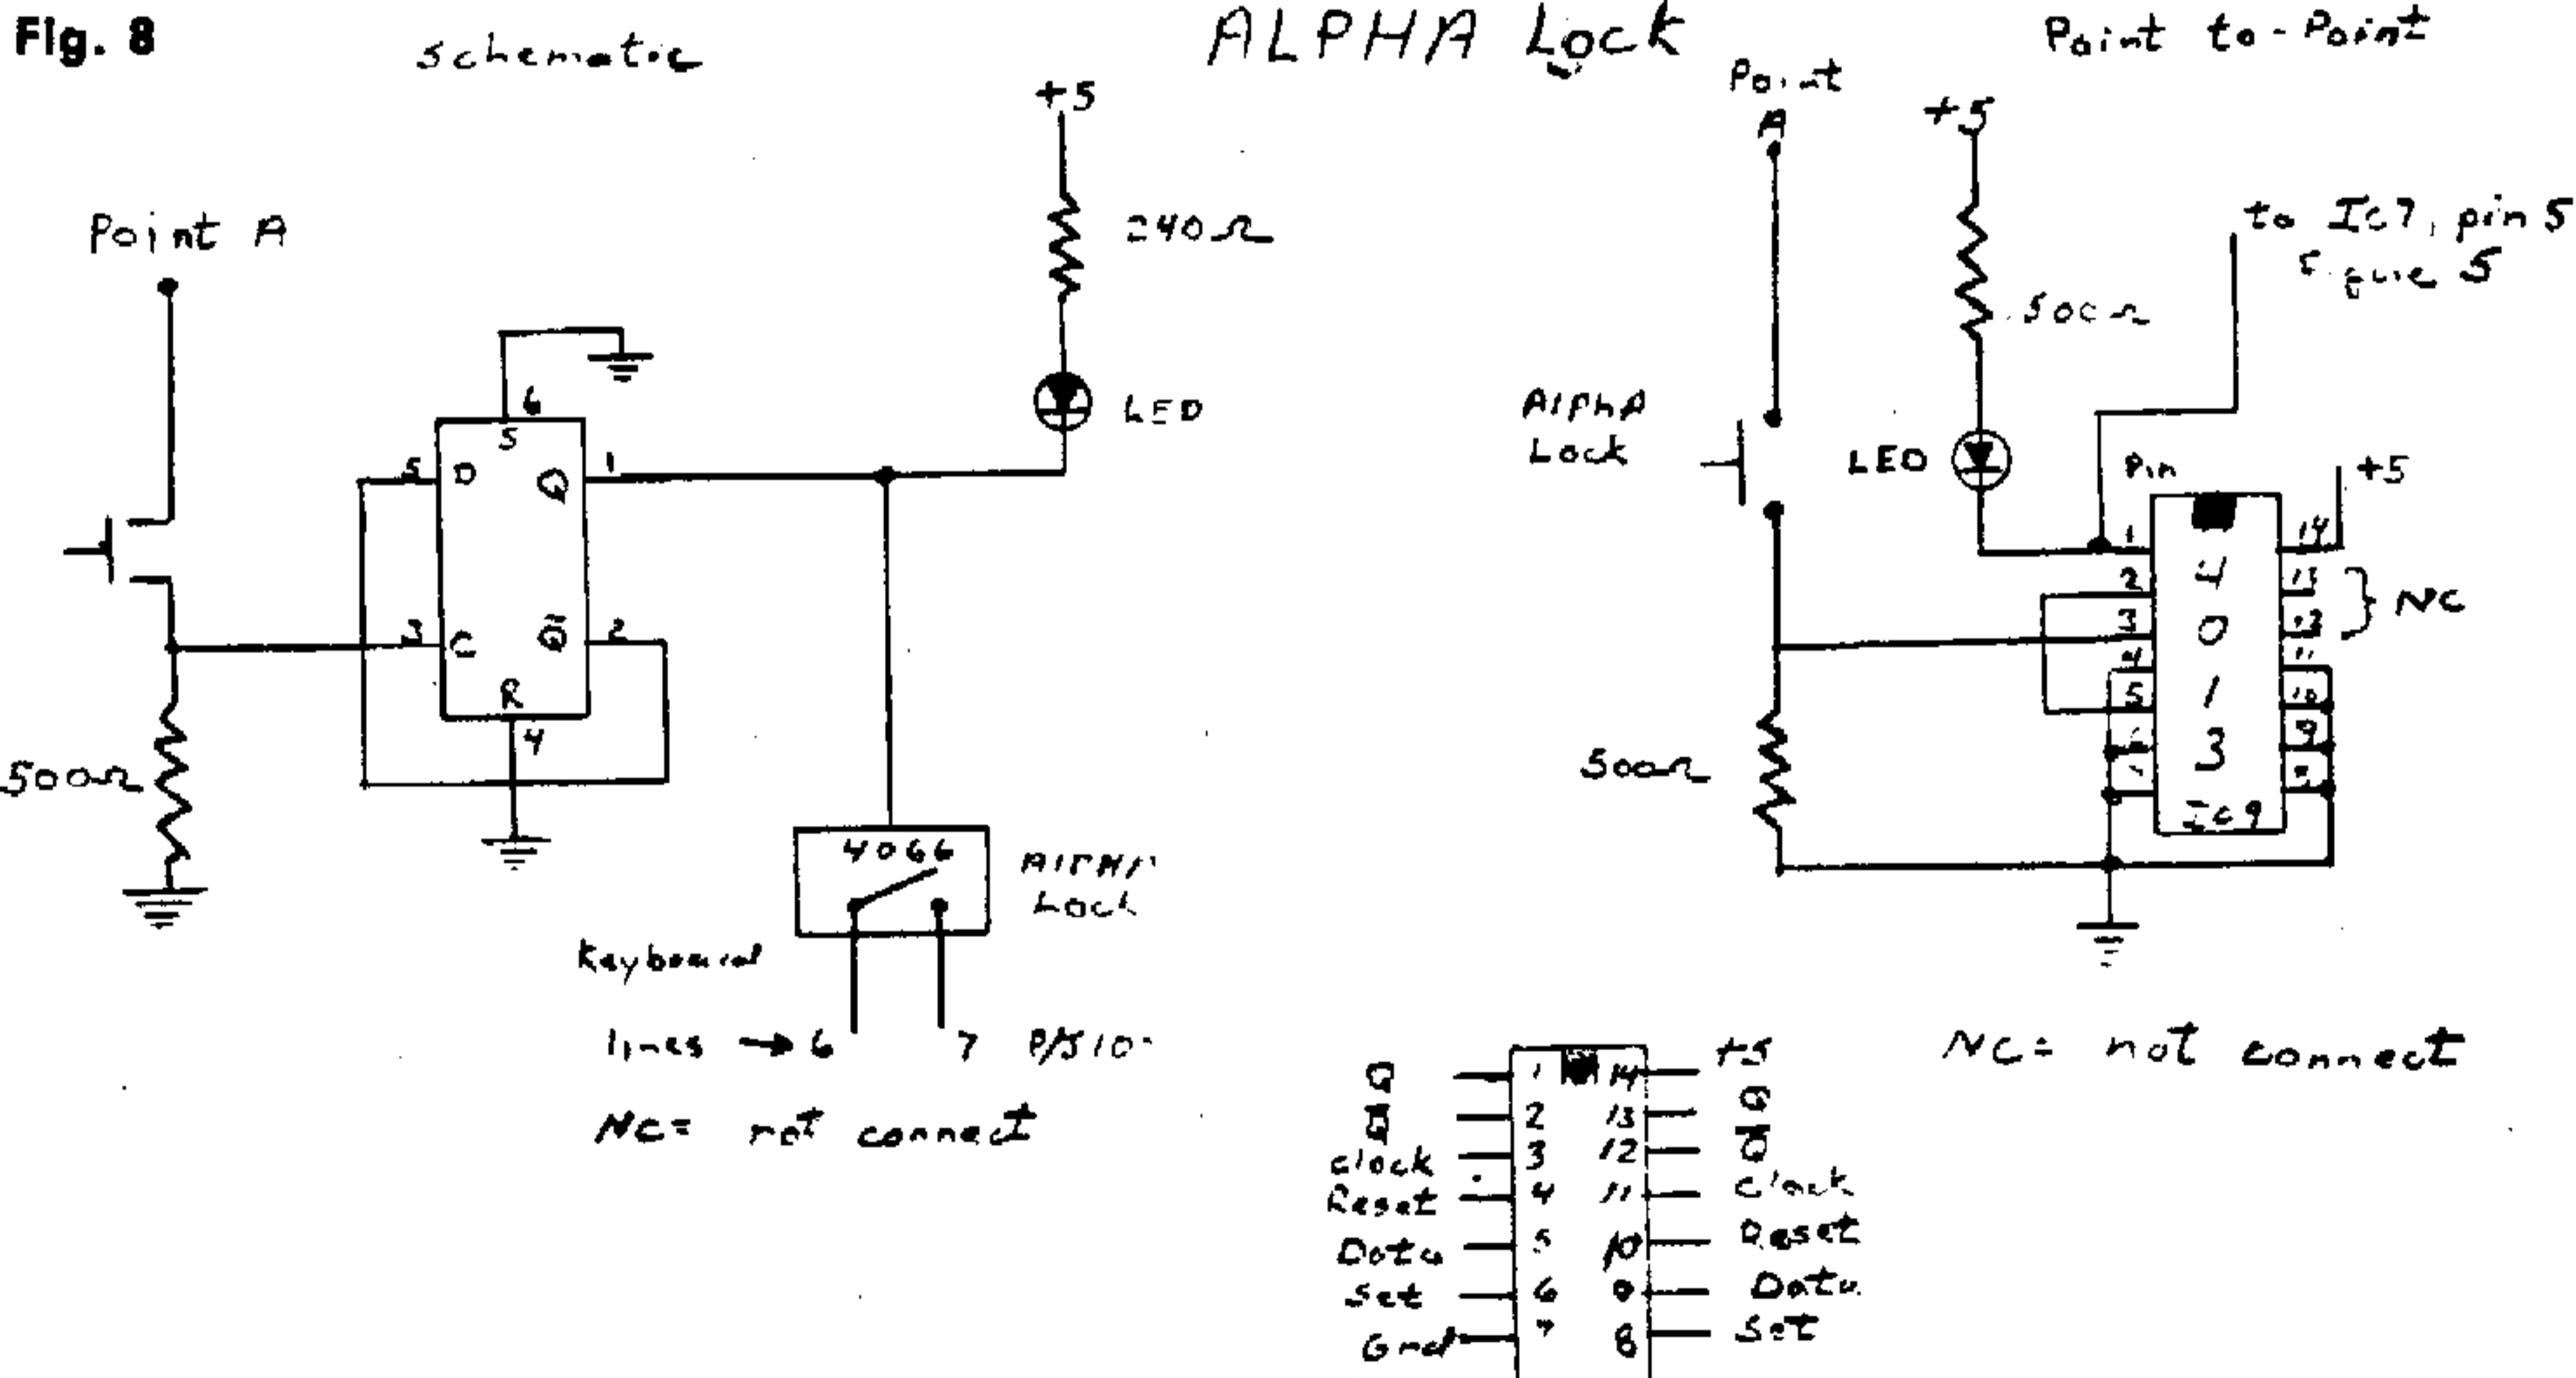 Fig. 8
Schematic
ALPHA Lock
Point to-Point
Point A
+5
240Ω
LED
6
S
5 D Q 1
3 C Q̅ 2
R
4
500Ω
4066
ALPHA
Lock
Keyboard
lines → 6 7
NC= not connect
Point
A
+5
to IC7, pin 5
Figure 5
500Ω
Alpha
Lock
LED
Pin
+5
1 14
2 4 13
NC
3 0 12
4 11
5 1 10
6 3 9
IC9
500Ω
NC= not connect
Q 1 14 +5
Q̅ 2 13 Q
clock 3 12 Q̅
Reset 4 11 clock
Data 5 10 Reset
Set 6 9 Data
Gnd 7 8 Set